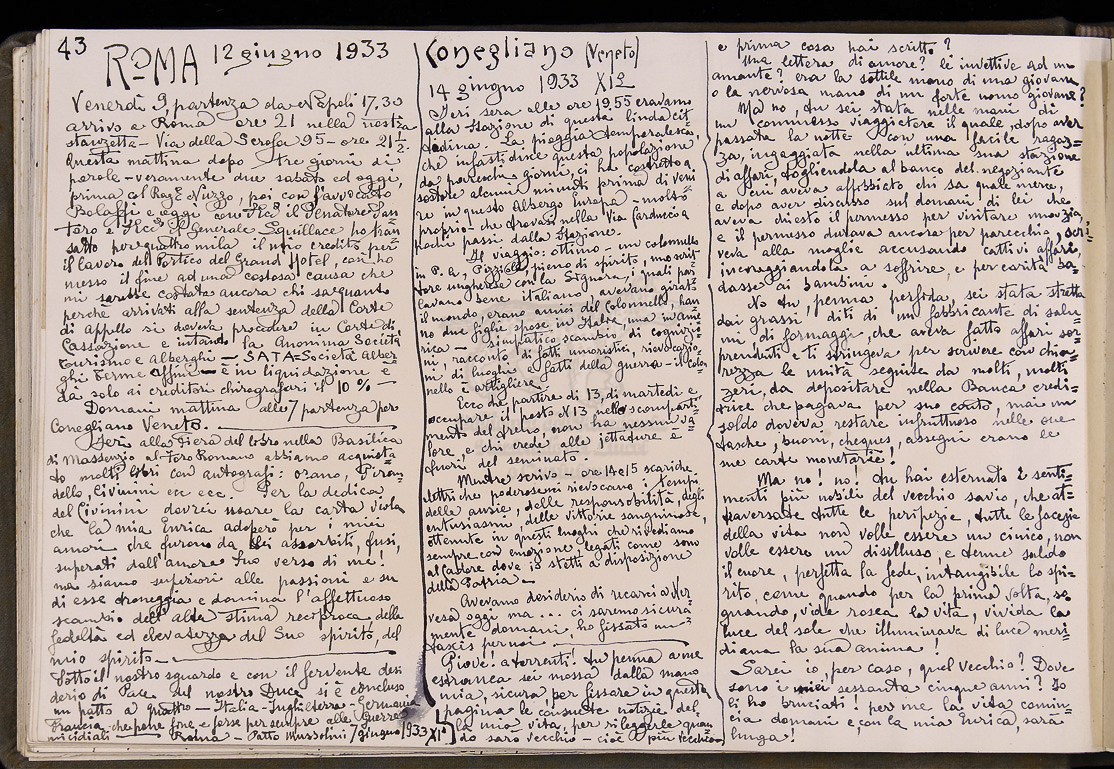 43
ROMA 12 giugno 1933
Venerdì 9, partenza da Napoli 17,30
arrivo a Roma ore 21 nella nostra
stanzetta - Via della Scrofa 95 - ore 21 1/2.
Questa mattina dopo tre giorni di
parole - veramente due sabato ed oggi,
prima col Rag. Nuzzo, poi con l'avvocato
Bolaffi e oggi con il Senatore San-
toro e il Generale Squillace ho tran-
satto per quattro mila il mio credito per
il lavoro del Portico del Grand Hotel, così ho
messo il fine ad una costosa causa che
mi sarebbe costata ancora chi sa quanto
perché arrivati alla sentenza della Corte
di Appello si doveva procedere in Corte di
Cassazione e intanto la Anonima Società
Turismo e Alberghi - SATA - Società Alber-
ghi Terme Affini - è in liquidazione e
dà solo ai creditori chirografari il 10% -
Domani mattina alle 7 partenza per
Conegliano Veneto.
Ieri alla fiera del libro nella Basilica
di Massenzio al Foro Romano abbiamo acquista-
to molti libri con autografi: Orano, Piran-
dello, Civinini ecc ecc. Per la dedica
del Civinini dovrei usare la carta viola
che la mia Enrica adoperò per i miei
amori che furono da Lei assorbiti, fusi,
superati dall'amore Suo verso di me!
ma siamo superiori alle passioni e su
di esse troneggia e domina l'affettuoso
scambio dell'alta stima reciproca, della
fedeltà ed elevatezza del Suo spirito, del
mio spirito -
Sotto il nostro sguardo e con il fervente desi
derio di Pace del nostro Duce si è concluso
un patto a quattro - Italia - Inghilterra - Germania
Francia - che pone fine e forse per sempre alle guerre
micidiali - Roma - Patto Mussolini 7 giugno 1933 XIº
Conegliano (Veneto)
14 giugno 1933 XIº
Ieri sera alle ore 19,55 eravamo
alla stazione di questa linda cit-
tadina. La pioggia temporalesca,
che infastidisce questa popolazione
da parecchi giorni, ci ha costretto a
sostare alcuni minuti prima di veni
re in questo Albergo Europa - molto
proprio - che trovasi nella Via Carducci a
pochi passi dalla Stazione.
Il viaggio: ottimo - un colonnello
in P.A., Pizzi, pieno di spirito, uno scrit
tore ungherese con la Signora, i quali par
lavano bene italiano, avevano girato
il mondo, erano amici del Colonnello, han
no due figlie spose in Italia, una in Ame
rica - simpatico scambio di cognizio
ni, racconto di fatti umoristici, rievocazio-
ni di luoghi e fatti della guerra - il colon
nello è artigliere.
Ecco che partire di 13, di martedì e
occupare il posto N 13 nello scomparti-
mento del treno, non ha nessun va
lore, e chi crede alle jettature è
fuori del seminato.
Mentre scrivo - ore 14 e 15 scariche
elettriche poderose mi rievocano i tempi
delle ansie, delle responsabilità, degli
entusiasmi, delle vittorie sanguinose,
ottenute in questi luoghi che rivediamo
sempre con emozione legati come sono
al Cadore dove io stetti a disposizione
della Patria -
Avevamo desiderio di recarci a Ner
vesa oggi ma ... ci saremo sicura-
mente domani, ho fissato un
taxis per noi.
Piove! a torrenti! tu penna a me
estranea sei mossa dalla mano
mia, sicura per fissare in questa
pagina le consuete notizie del
la mia vita, per rileggerle quan
do sarò vecchio - cioè più vecchio
e prima cosa hai scritto?
Una lettera di amore? le invettive ad un
amante? era la sottile mano di una giovane
o la nervosa mano di un forte uomo giovane?
Ma no, tu sei stata nelle mani di
un commesso viaggiatore il quale, dopo aver
passata la notte con una facile ragaz-
za, ingaggiata nella ultima sua stazione
di affari, togliendola al banco del negoziante
a cui aveva affibbiato chi sa quale merce,
e dopo aver discusso sul domani di lei che
aveva chiesto il permesso per visitare uno zio,
e il permesso durava ancora per parecchio, scri
veva alla moglie accusando cattivi affari,
incoraggiandola a soffrire, e per carità ba-
dasse ai bambini.
No tu, penna perfida, sei stata stretta
dai grassi, diti di un fabbricante di salu
mi, di formaggi, che aveva fatto affari sor
prendenti e ti stringeva per scrivere con chia-
rezza le unità seguite da molti, molti
zeri, da depositare nella Banca credi-
trice che pagava per suo conto, mai un
soldo doveva restare infruttuoso nelle sue
tasche, buoni, cheques, assegni erano le
sue carte monetarie!
Ma no! no! tu hai esternato i senti-
menti più nobili del vecchio savio, che at-
traversate tutte le peripezie, tutte le facezie
della vita non volle essere un cinico, non
volle essere un disilluso, e tenne saldo
il cuore, perfetta la fede, intangibile lo spi-
rito, come quando per la prima volta, so
gnando, vide rosea la vita, vivida la
luce del sole che illuminava di luce meri-
diana la sua anima!
Sarei io, per caso, quel vecchio? Dove
sono i miei sessanta cinque anni? Io
li ho bruciati! per me la vita comin-
cia domani e, con la mia Enrica, sarà
lunga!